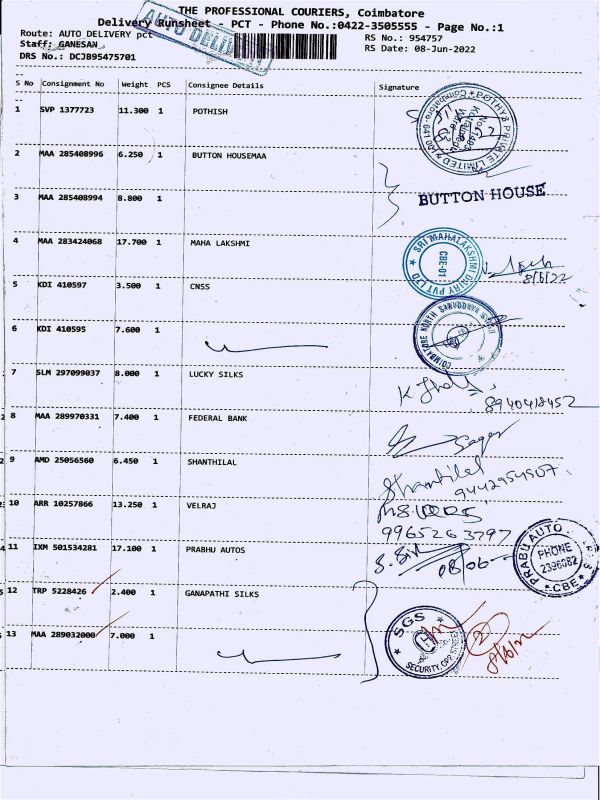 THE PROFESSIONAL COURIERS, Coimbatore
Delivery Runsheet - PCT - Phone No.:0422-3505555 - Page No.:1
AUTO DELIVERY
Route: AUTO DELIVERY pct
RS No.: 954757
Staff: GANESAN
RS Date: 08-Jun-2022
DRS No.: DCJB95475701
S No Consignment No Weight PCS Consignee Details Signature
1 SVP 1377723 11.300 1 POTHISH
POTHYS PRIVATE LIMITED Coimbatore-641 001
2 MAA 285408996 6.250 1 BUTTON HOUSEMAA
BUTTON HOUSE
3 MAA 285408994 8.800 1
4 MAA 283424068 17.700 1 MAHA LAKSHMI
SRI MAHALAKSHMI DAIRY PVT LTD
CBE-01
8/6/22
5 KDI 410597 3.500 1 CNSS
COIMBATORE NORTH SARVODAYA
6 KDI 410595 7.600 1
7 SLM 297099037 8.000 1 LUCKY SILKS
8940418452
8 MAA 289970331 7.400 1 FEDERAL BANK
Sagar
9 AMD 25056560 6.450 1 SHANTHILAL
Shantilal
9442954507
10 ARR 10257866 13.250 1 VELRAJ
9965263797
11 IXM 501534281 17.100 1 PRABHU AUTOS
08/06
PRABU AUTO
PHONE
2396082
CBE
12 TRP 5228426 2.400 1 GANAPATHI SILKS
13 MAA 289032000 7.000 1
SGS
SECURITY, OPP. STREET